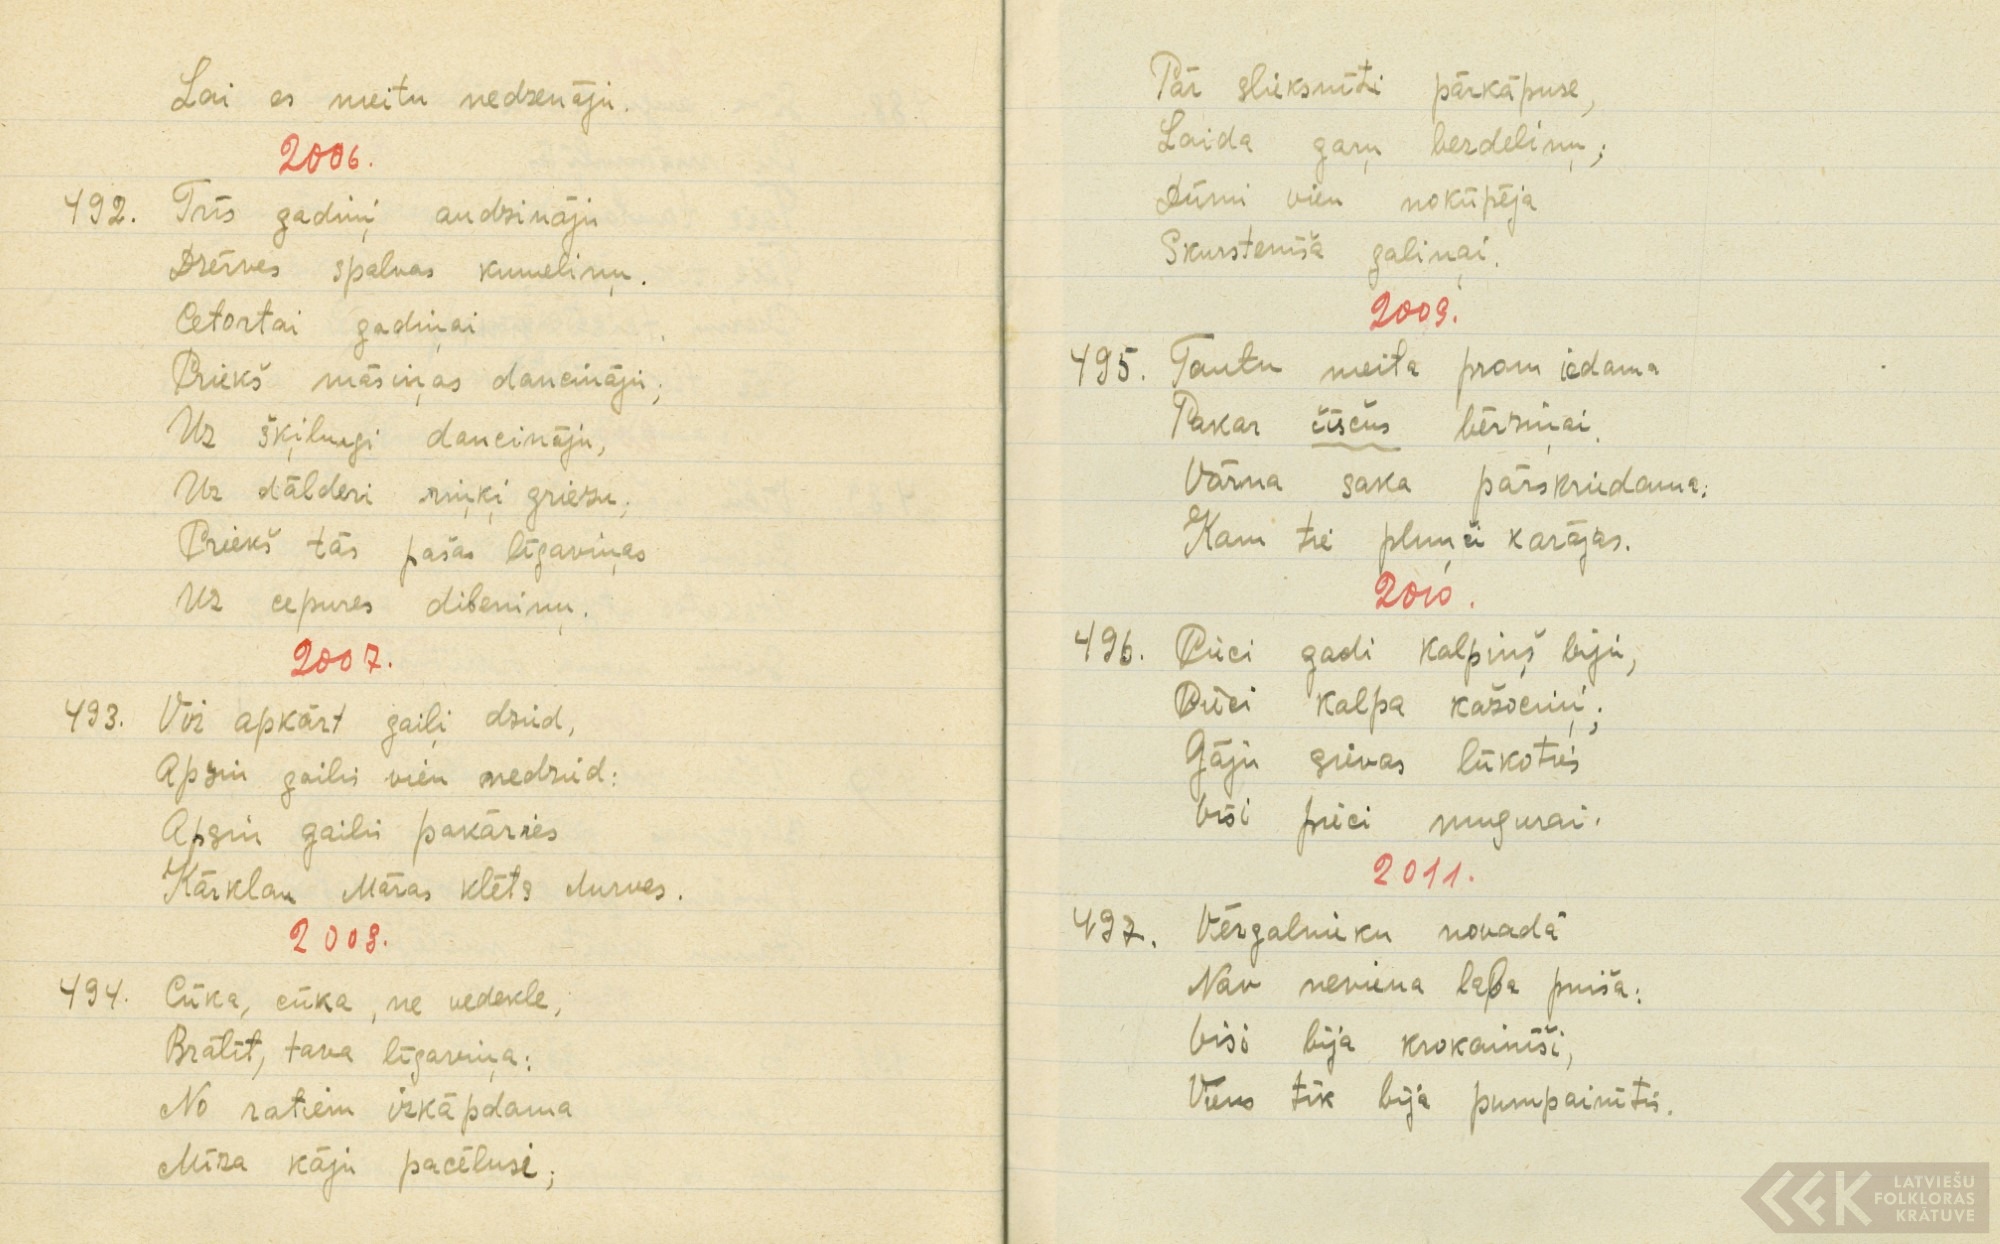 Lai es meitu nedzenāju.
2006.
492. Trīs gadiņi audzināju
Dzērves spalvas kumeliņu.
Cetortai gadiņai
Priekš māsiņas dancināju;
Uz šķiluņģi dancināju,
Uz dālderi riņķi griezu;
Priekš tās pašas līgaviņas
Uz cepures dibeniņu.
2007.
493. Viz apkārt gaiļi dzied,
Apšu gailis vien nedzied:
Apšu gailis pakāries
Kārklau Māras klēts durves.
2008.
494. Cūka, cūka, ne vedekle,
Brālīt, tava līgaviņa:
No ratiem izkāpdama
Mīza kāju pacēlusi;
Pār slieksnīti pārkāpuse,
Laida garu bezdeliņu;
Dūmi vien nokūpēja
Skursteniša galiņai.
2009.
495. Tautu meita prom iedama
Pakar čīščus bērziņai.
Vārna saka pārskriedama:
Kam tie plunči karājas.
2010.
496. Pieci gadi kalpiņš biju,
Pieci kalpa kažociņi;
Gāju sievas lūkoties
Visi pieci mugurai.
2011.
497. Vērgalnieku novadā
Nav neviena laba puiša:
Visi bija krokainīši,
Viens tik bija pumpainītis.
LATVIEŠU
FOLKLORAS
KRĀTUVE